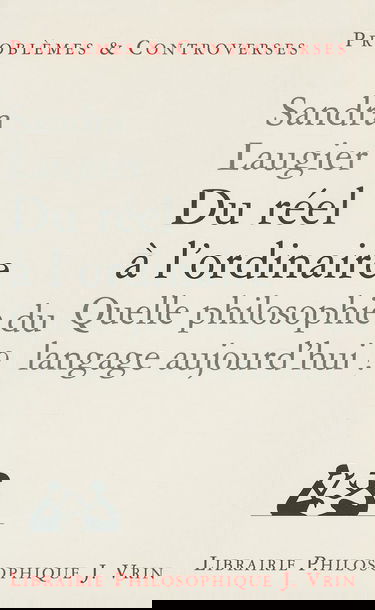 PROBLÈMES & CONTROVERSES
Sandra
Laugier
Du réel
à l'ordinaire
Quelle philosophie
du langage aujourd'hui ?
LIBRAIRIE PHILOSOPHIQUE J. VRIN
LIBRAIRIE PHILOSOPHIQUE J. VRIN